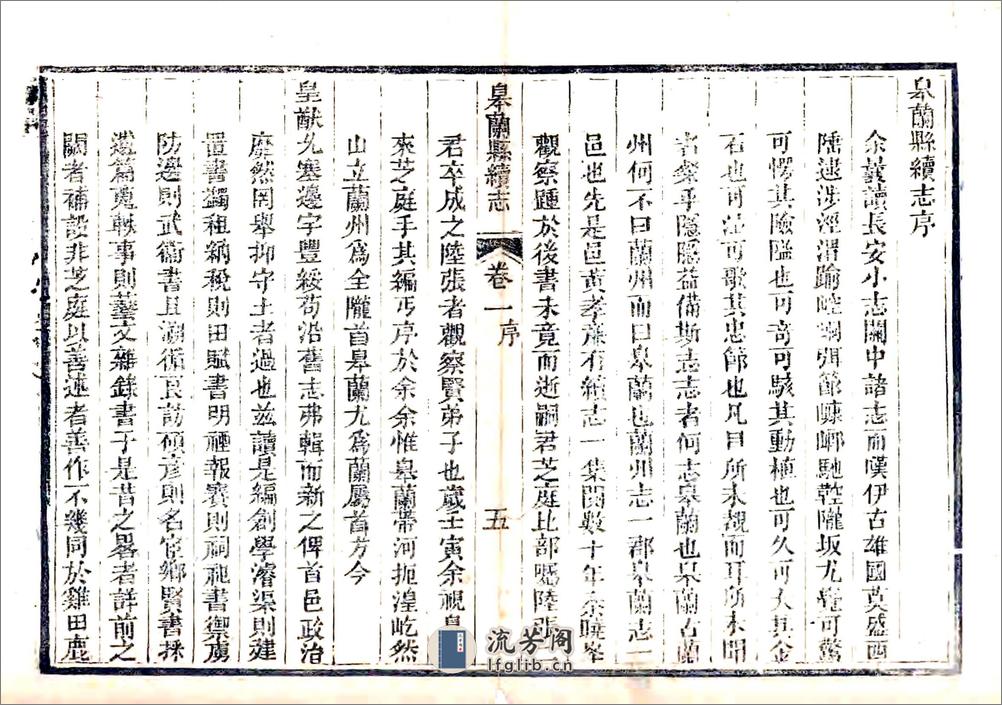 皋蘭縣續志序
余曩讀長安小志關中諸志而嘆伊古雄國莫盛西
陲逮涉涇渭踰崆峒弭節㠠崤馳乾隴坂尤竒可驚
可愕其險隘也可奇可駭其動植也可久可大其金
石也可泣可歌其忠節也凡目所未覩而耳所未聞
者粲乎隱隱益備斯志志者何志皋蘭也皋蘭古蘭
州何不曰蘭州而曰皋蘭也蘭州志一郡皋蘭志一
邑也先是邑黃孝廉有續志一集閱數十年秦曉峯
觀察踵於後書未竟而逝嗣君芝庭比部囑陸張
皋蘭縣續志 卷一 序 五
君卒成之陸張者觀察賢弟子也歲壬寅余視臬
來芝庭手其編丐序於余余惟皋蘭帶河扼湟屹然
山立蘭州爲全隴首皋蘭尤爲蘭屬首方今
皇猷允塞邊字豐綏苟沿舊志弗輯而新之俾首邑政治
靡然罔舉抑守土者過也茲讀是編創學濬渠則建
置書蠲租緡稅則田賦書明禋報賽則祠祀書禦虜
防邊則武衛書且漏循良訪碩彥則名宦鄉賢書採
遺篇蒐軼事則藝文雜錄書于是昔之畧者詳前之
闕者補設非芝庭以善述者善作不幾同於雞田鹿
流芳阁
lfglib.cn